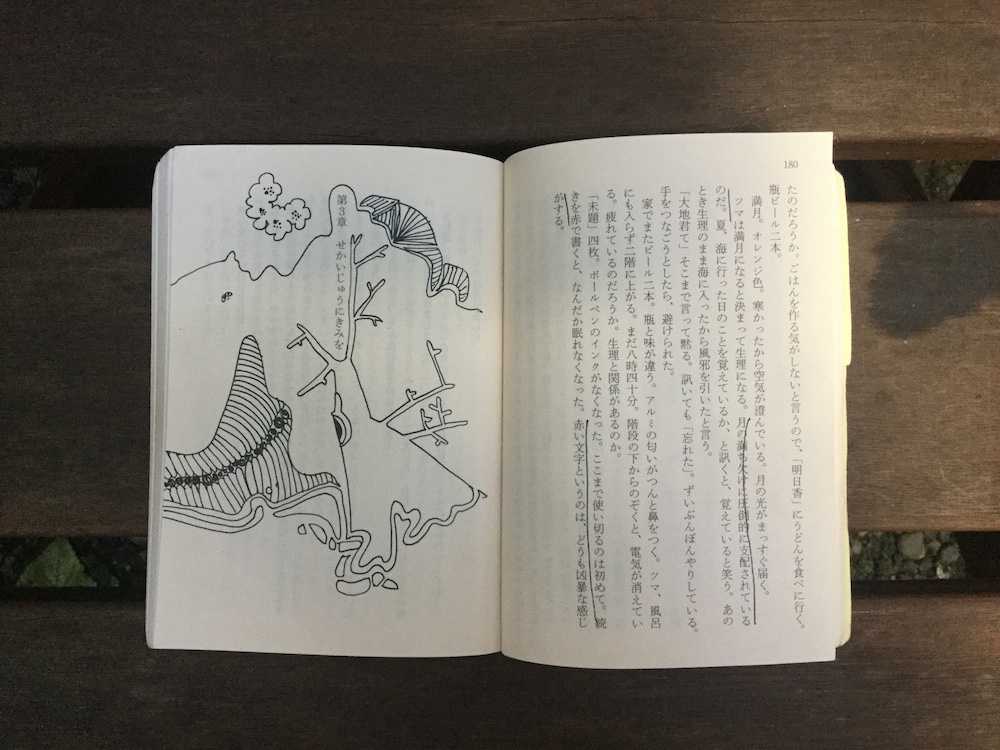 180
たのだろうか。ごはんを作る気がしないと言うので、「明日香」にうどんを食べに行く。
瓶ビール二本。
満月。オレンジ色。寒かったから空気が澄んでいる。月の光がまっすぐ届く。
ツマは満月になると決まって生理になる。月の満ち欠けに圧倒的に支配されている
のだ。夏、海に行った日のことを覚えているか、と訊くと、覚えていると笑う。あの
とき生理のまま海に入ったから風邪を引いたと言う。
「大地君て」そこまで言って黙る。訊いても「忘れた」。ずいぶんぼんやりしている。
手をつなごうとしたら、避けられた。
家でまたビール二本。瓶と味が違う。アルミの匂いがつんと鼻をつく。ツマ、風呂
にも入らず二階に上がる。まだ八時四十分。階段の下からのぞくと、電気が消えてい
る。疲れているのだろうか。生理と関係があるのか。
「未題」四枚。ボールペンのインクがなくなった。ここまで使い切るのは初めて。続
きを赤で書くと、なんだか眠れなくなった。赤い文字というのは、どうも凶暴な感じ
がする。
第3章 せかいじゅうにきみを